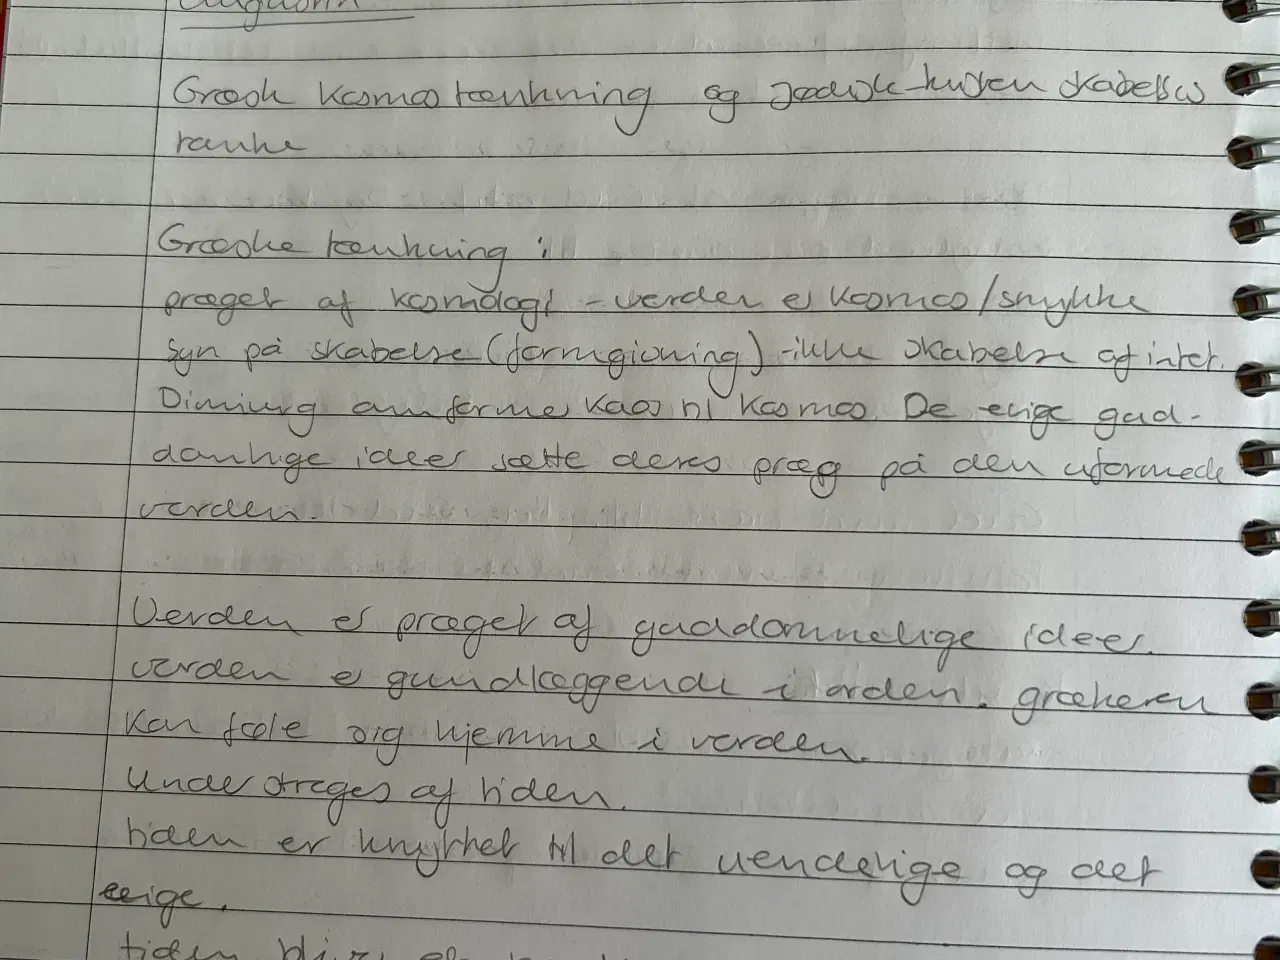 Græsk Kosmostænkning og Jødisk-kristen skabelses
tanke
Græske tænkning :
præget af kosmologi - verden er kosmos/smykke
Syn på skabelse (formgivning) - ikke skabelse af intet.
Dimiurg omforme kaos til kosmos. De evige gud-
danlige ideer sætte deres præg på den uformede
verden.
Verden er præget af guddommelige ideer.
verden er gundlæggende i orden. grækeren
kan føle sig hjemme i verden.
Understreges af tiden.
tiden er knyttet til det uendelige og det
evige.
tiden